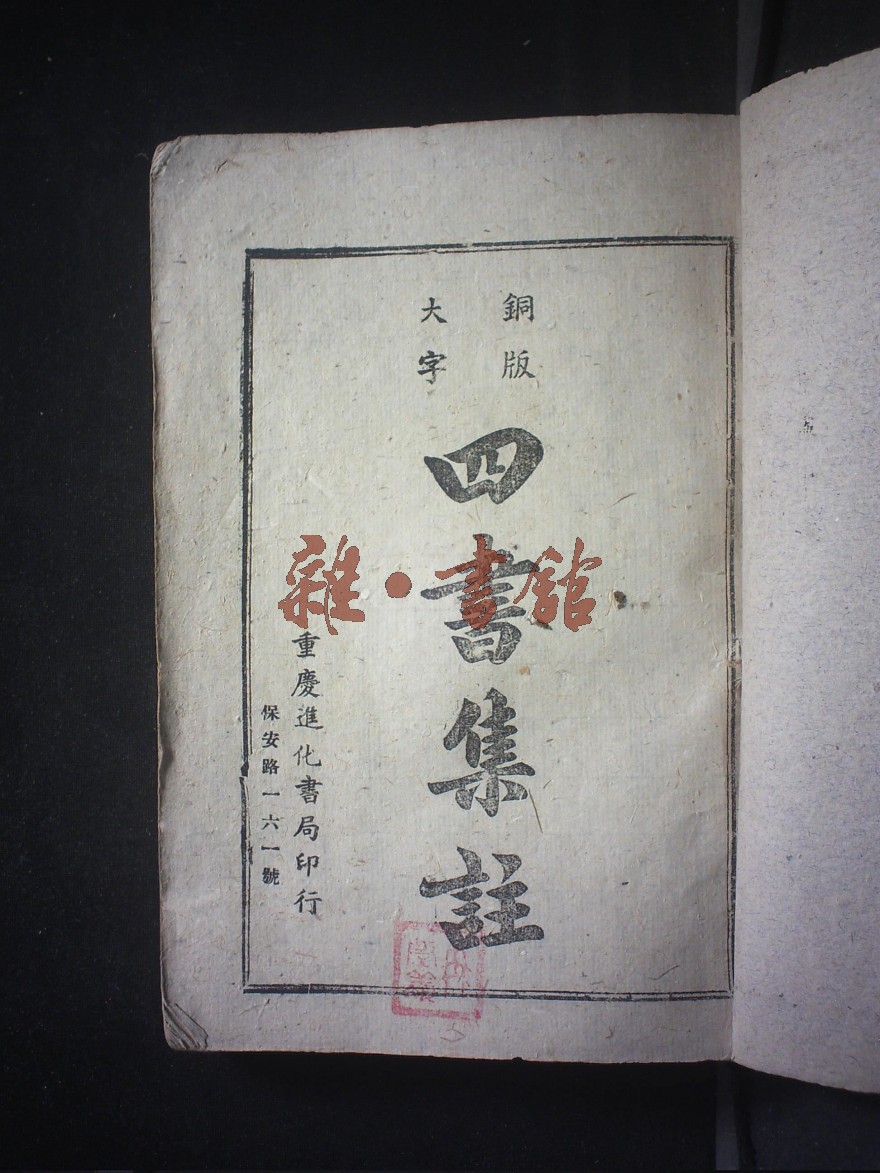 銅版
大字
四書集註
重慶進化書局印行
保安路一六一號
雜·書館